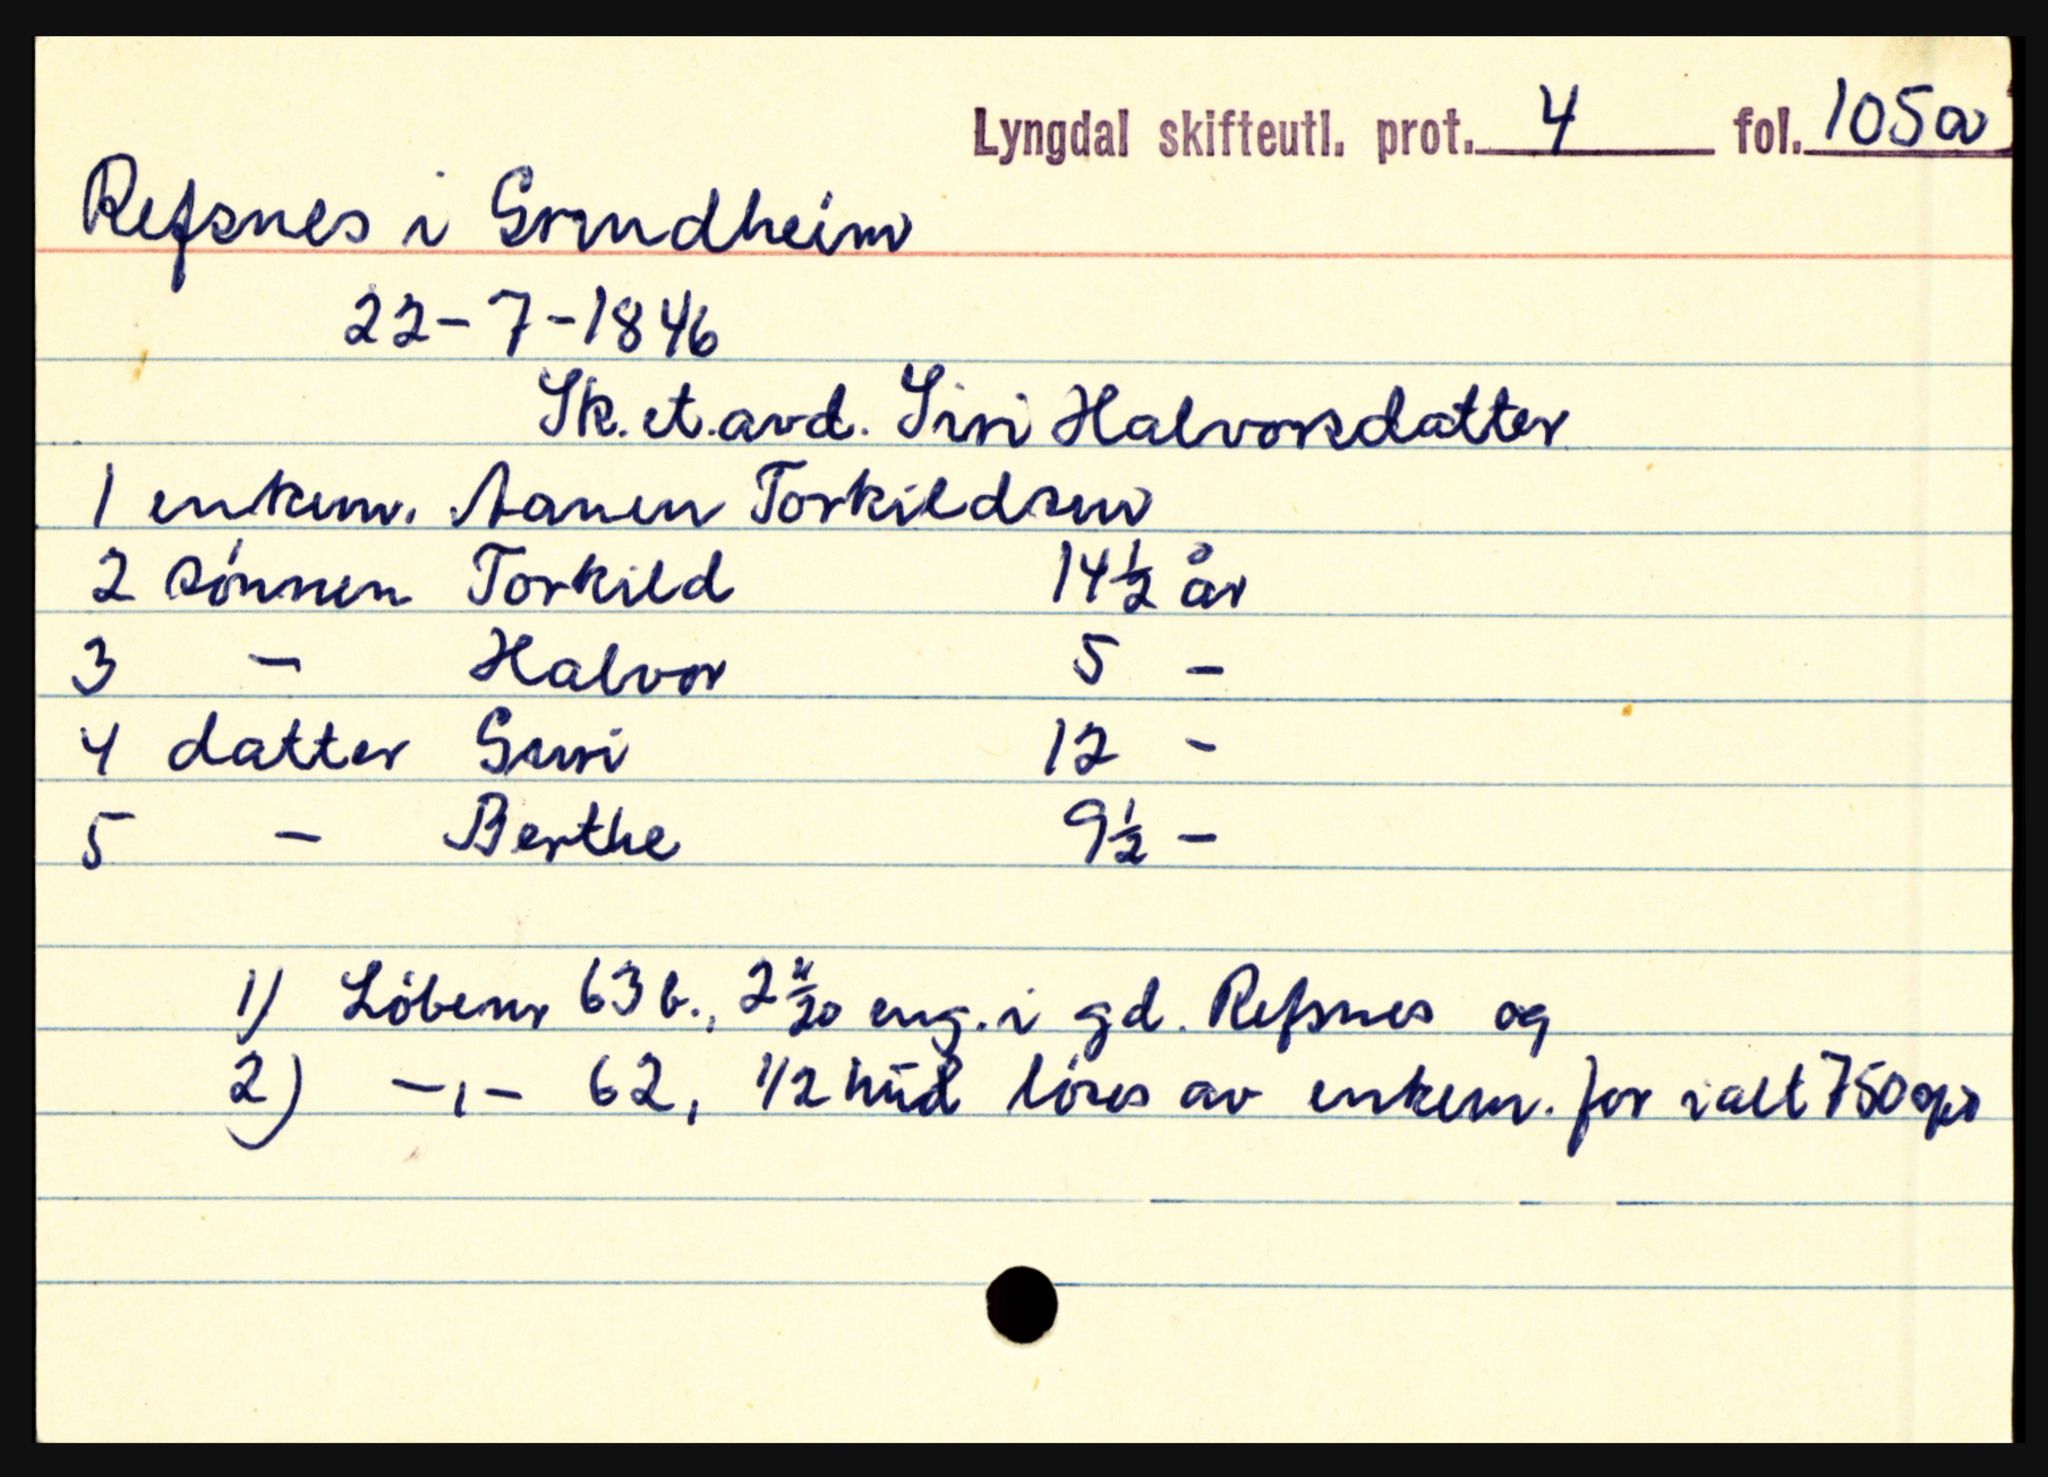 Lyngdal skifteutl. prot. 4 fol. 105a
Refsnes i Grindheim
22-7-1846
Sk. et. avd. Siri Halvorsdatter
1 enkem. Aanen Torkildsen
2 sönnen Torkild 14½ år
3 - Halvor 5 -
4 datter Guri 12 -
5 - Berthe 9½ -
1) Löbenr 63 b., 2 eng. i gd. Refsnes og
2) -,- 62, 1/2 hud löses av enkem. for ialt 750 spd